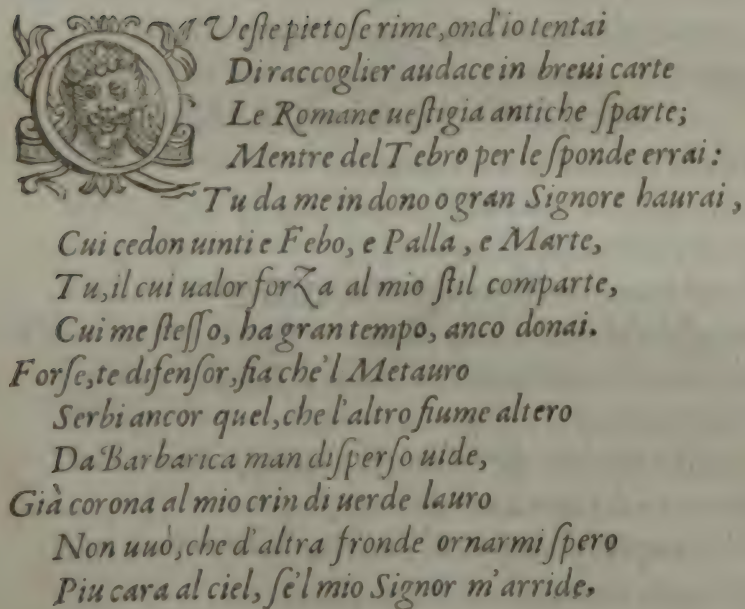 QVeſte pietoſe rime, ond'io tentai
Di raccoglier audace in breui carte
Le Romane ueſtigia antiche ſparte;
Mentre del Tebro per le ſponde errai:
Tu da me in dono o gran Signore haurai,
Cui cedon uinti e Febo, e Palla, e Marte,
Tu, il cui ualor forza al mio ſtil comparte,
Cui me ſteſſo, ha gran tempo, anco donai.
Forſe, te difenſor, fia che'l Metauro
Serbi ancor quel, che l'altro fiume altero
Da Barbarica man diſperſo uide,
Già corona al mio crin di uerde lauro
Non uuò, che d'altra fronde ornarmi ſpero
Piu cara al ciel, ſe'l mio Signor m'arride.